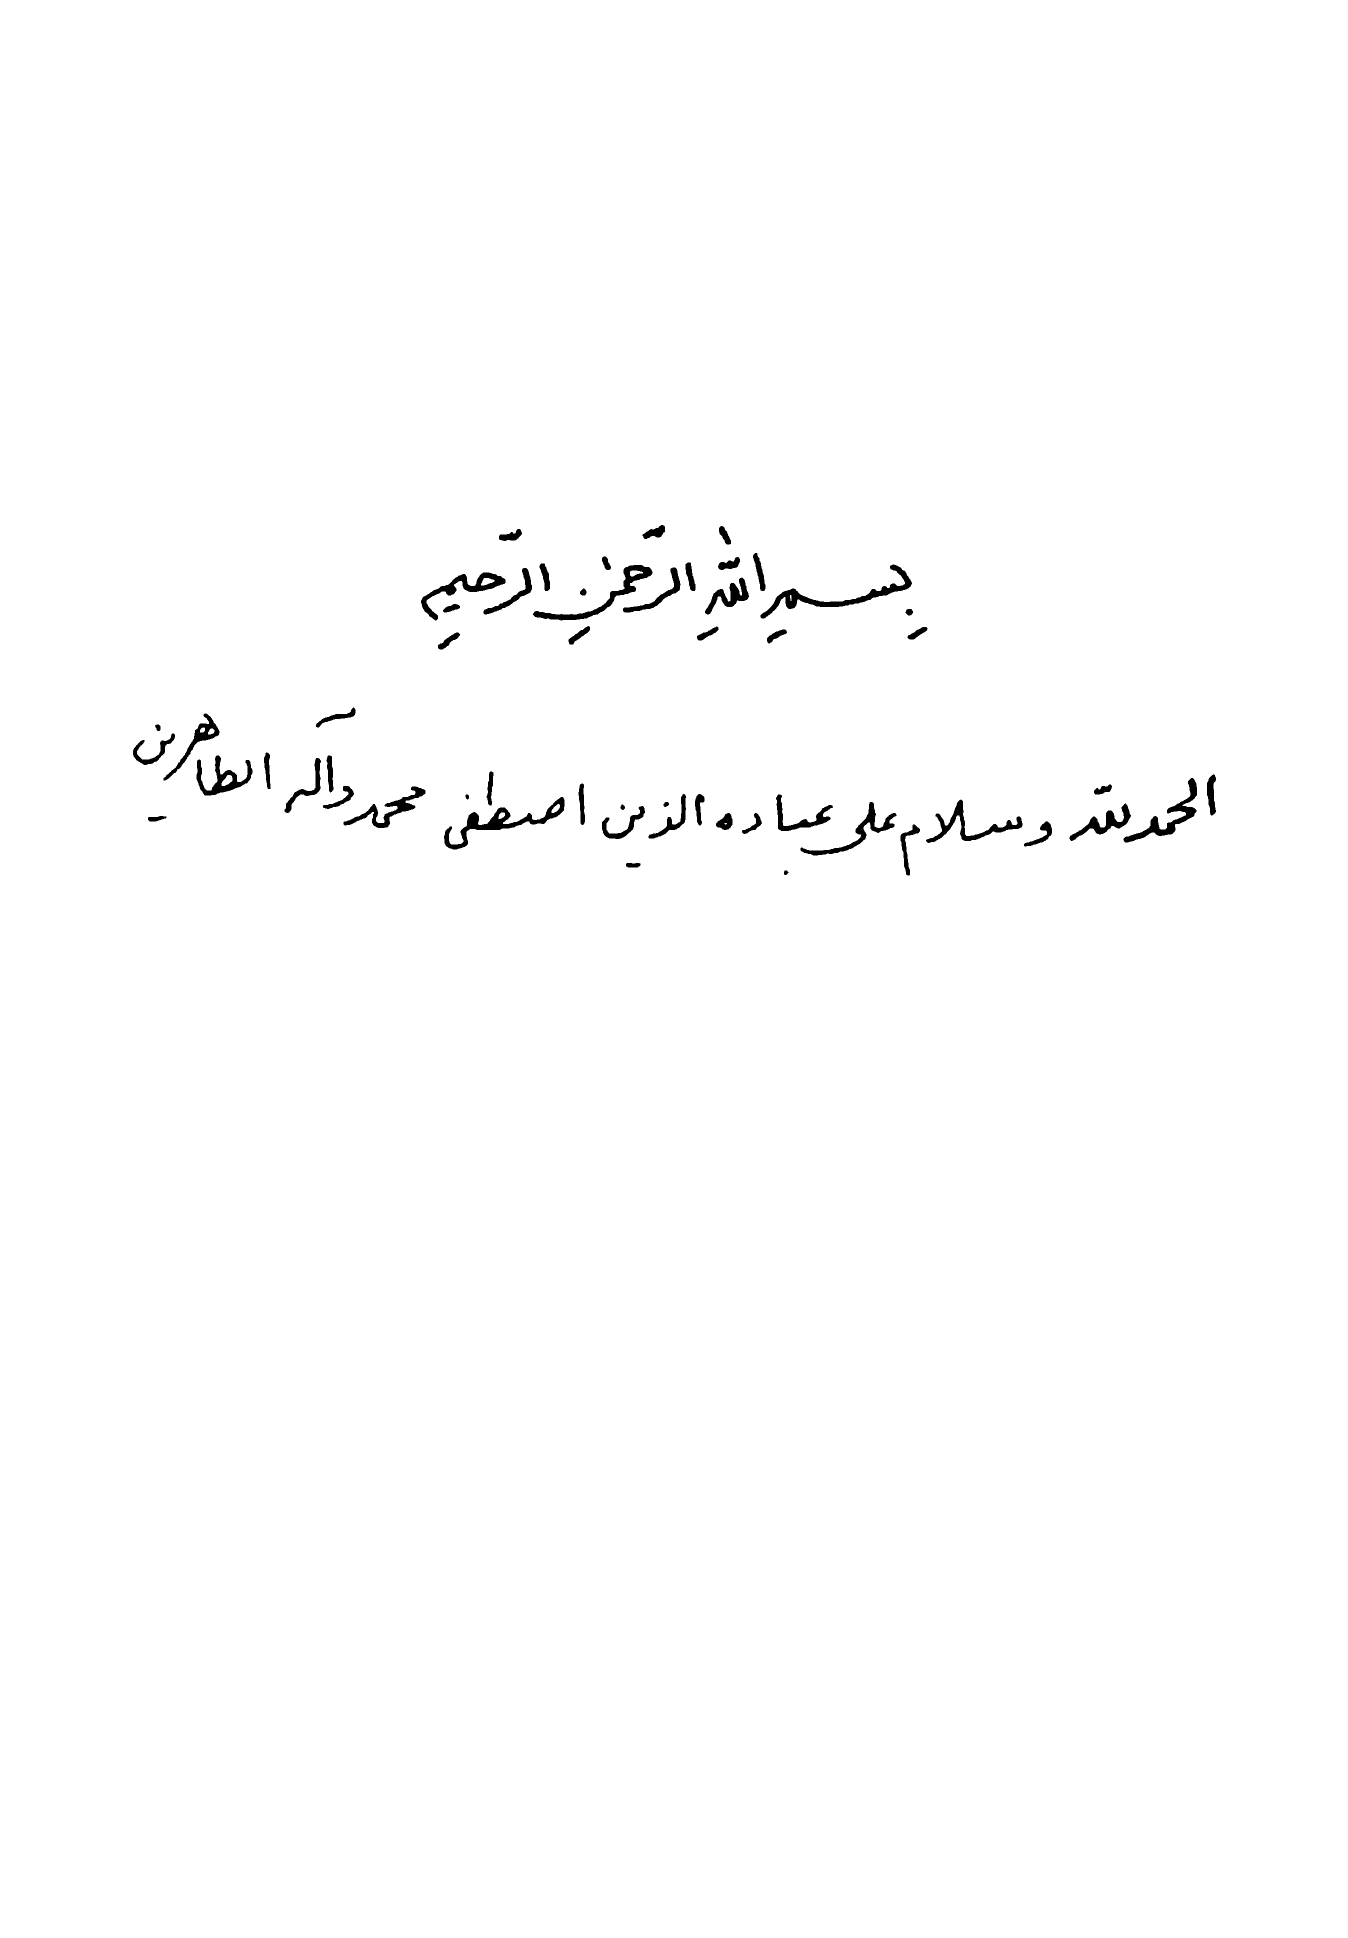 بِسمِ اللهِ الرّحمٰنِ الرّحيمِ
الحمد للّه وسلام على عباده الذين اصطفى محمد وآله الطاهرين